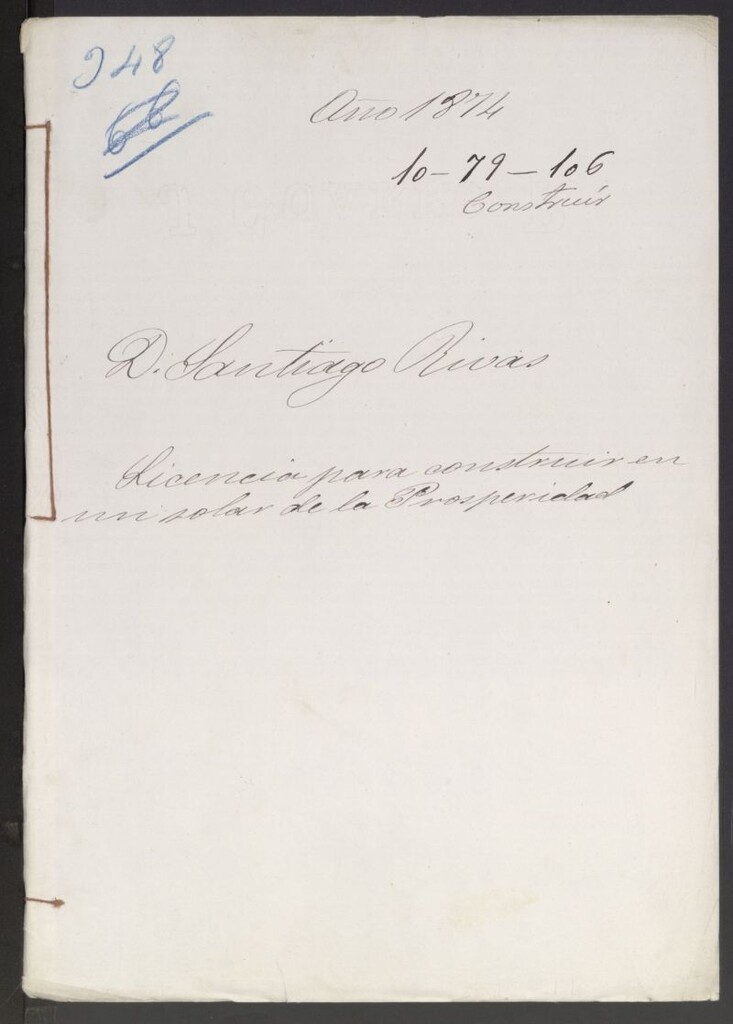 248
66
Año 1874
10-79-106
Construir
D. Santiago Rivas
Licencia para construir en
un solar de la Prosperidad